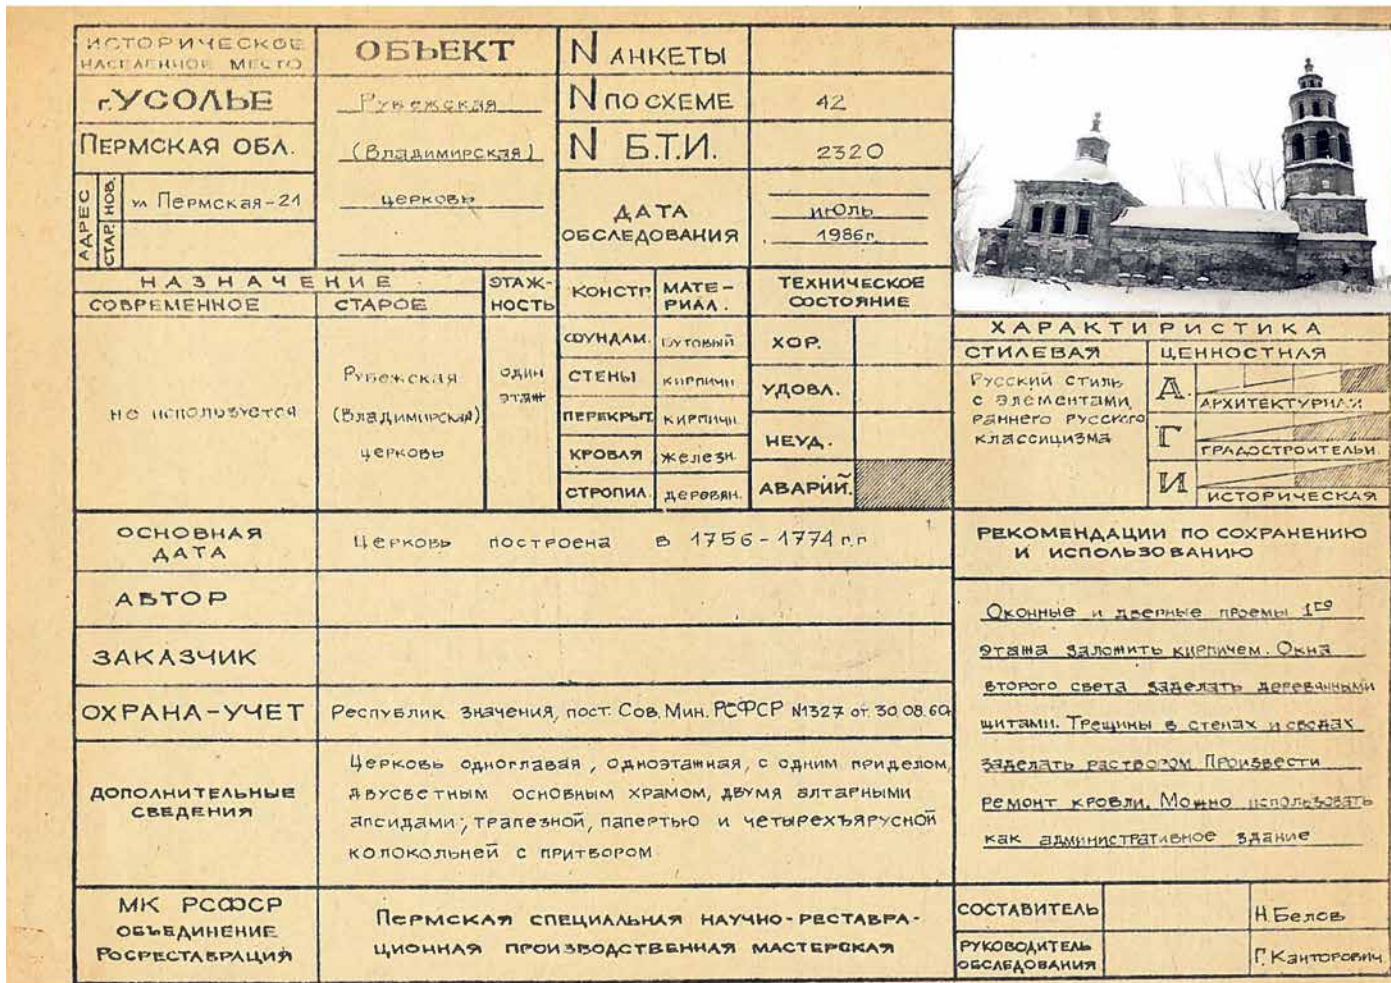 ИСТОРИЧЕСКОЕ
НАСЕЛЕННОЕ МЕСТО
г. УСОЛЬЕ
ПЕРМСКАЯ ОБЛ.
АДРЕС
СТАР. НОВ.
ул Пермская-21
ОБЪЕКТ
Рубежская
(Владимирская)
церковь
N АНКЕТЫ
N ПО СХЕМЕ
42
N Б.Т.И.
2320
ДАТА
ОБСЛЕДОВАНИЯ
июль
1986г.
НАЗНАЧЕНИЕ
СОВРЕМЕННОЕ
СТАРОЕ
не используется
Рубежская
(Владимирская)
церковь
ЭТАЖ-
НОСТЬ
один
этаж
КОНСТР.
МАТЕ-
РИАЛ.
ФУНДАМ.
бутовый
СТЕНЫ
кирпичн
ПЕРЕКРЫТ.
кирпичн.
КРОВЛЯ
железн.
СТРОПИЛ.
деревян.
ТЕХНИЧЕСКОЕ
СОСТОЯНИЕ
ХОР.
УДОВЛ.
НЕУД.
АВАРИЙ.
ХАРАКТИРИСТИКА
СТИЛЕВАЯ
ЦЕННОСТНАЯ
Русский стиль
с элементами
раннего русского
классицизма
А.
АРХИТЕКТУРНАЯ
Г
ГРАДОСТРОИТЕЛЬН.
И
ИСТОРИЧЕСКАЯ
ОСНОВНАЯ
ДАТА
Церковь построена в 1756-1774 г.г
АВТОР
ЗАКАЗЧИК
ОХРАНА-УЧЕТ
Республик значения, пост. Сов. Мин. РСФСР N1327 от. 30.08.60
ДОПОЛНИТЕЛЬНЫЕ
СВЕДЕНИЯ
Церковь одноглавая, одноэтажная, с одним приделом,
двусветным основным храмом, двумя алтарными
апсидами, трапезной, папертью и четырехъярусной
колокольней с притвором
РЕКОМЕНДАЦИИ ПО СОХРАНЕНИЮ
И ИСПОЛЬЗОВАНИЮ
Оконные и дверные проемы 1го
этажа заложить кирпичем. Окна
второго света заделать деревянными
щитами. Трещины в стенах и сводах
заделать раствором Произвести
ремонт кровли. Можно использовать
как административное здание
МК РСФСР
ОБЪЕДИНЕНИЕ
РОСРЕСТАВРАЦИЯ
ПЕРМСКАЯ СПЕЦИАЛЬНАЯ НАУЧНО-РЕСТАВРА-
ЦИОННАЯ ПРОИЗВОДСТВЕННАЯ МАСТЕРСКАЯ
СОСТАВИТЕЛЬ
Н. Белов
РУКОВОДИТЕЛЬ
ОБСЛЕДОВАНИЯ
Г. Канторович